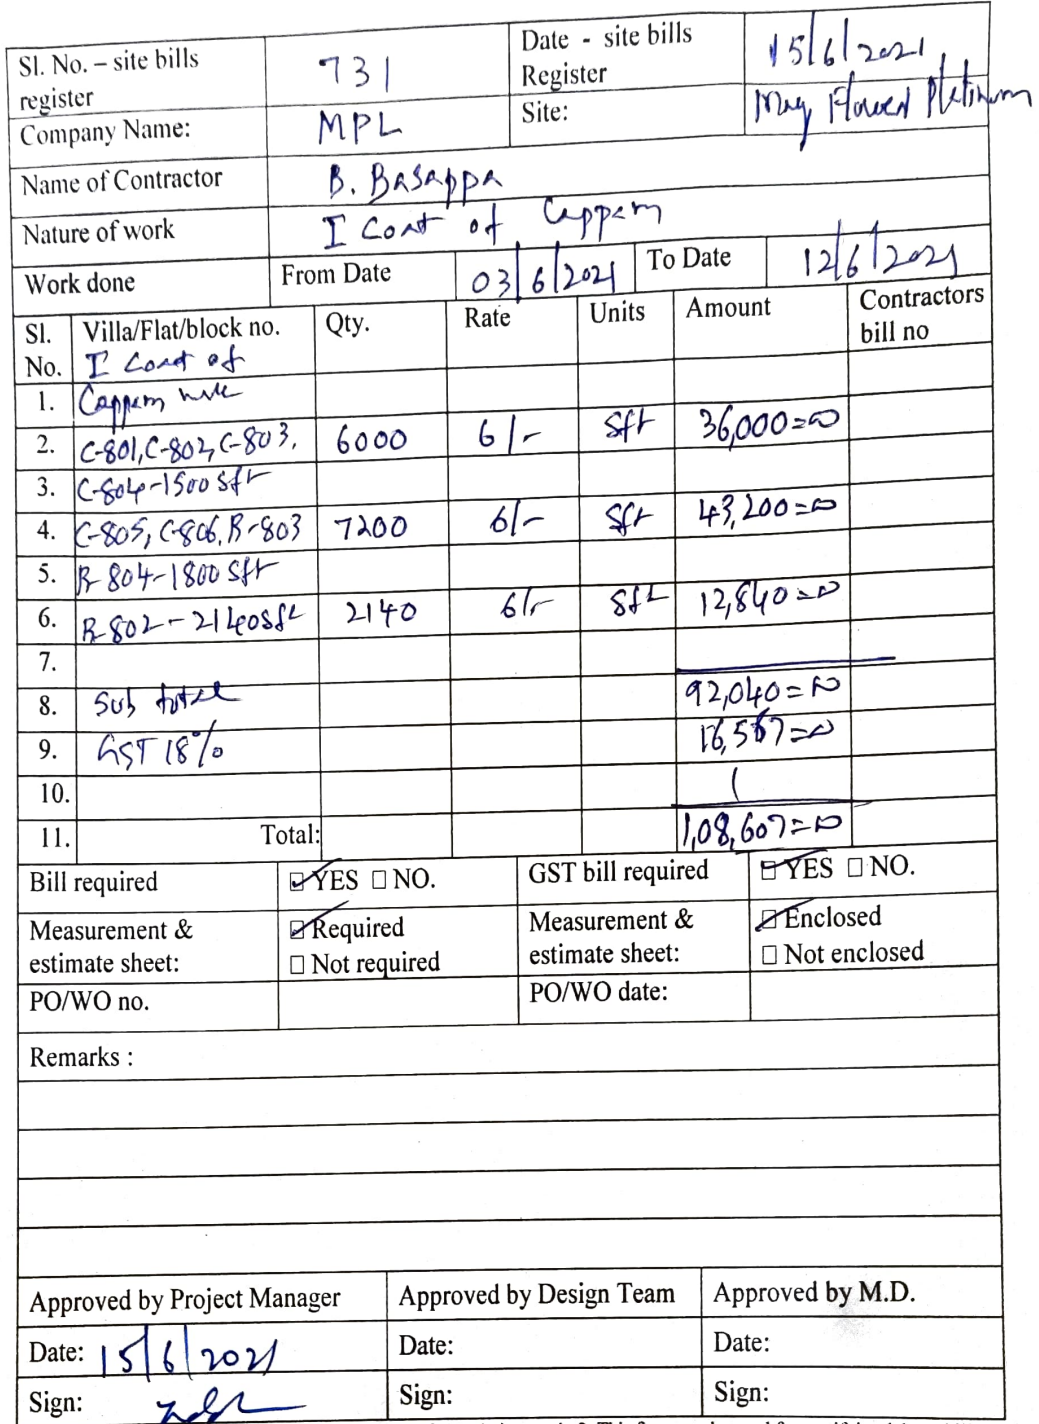 Sl. No. – site bills register 731 Date - site bills Register 15/6/2021
Company Name: MPL Site: May Flower Platinum
Name of Contractor B. Basappa
Nature of work I Coat of Lappam
Work done From Date 03/6/2021 To Date 12/6/2021
Sl. No. Villa/Flat/block no. Qty. Rate Units Amount Contractors bill no
I Coat of
1. Lappam work
2. C-801, C-802, C-803, 6000 6/- Sft 36,000=00
3. C-804-1500 Sft
4. C-805, C-806, B-803 7200 6/- Sft 43,200=00
5. B-804-1800 Sft
6. B-802-2140 Sft 2140 6/- Sft 12,840=00
7.
8. Sub total 92,040=00
9. GST 18% 16,567=00
10.
11. Total: 1,08,607=00
Bill required ☑ YES ☐ NO. GST bill required ☑ YES ☐ NO.
Measurement & estimate sheet: ☑ Required ☐ Not required Measurement & estimate sheet: ☑ Enclosed ☐ Not enclosed
PO/WO no. PO/WO date:
Remarks :
Approved by Project Manager Approved by Design Team Approved by M.D.
Date: 15/6/2021 Date: Date:
Sign: Sign: Sign: